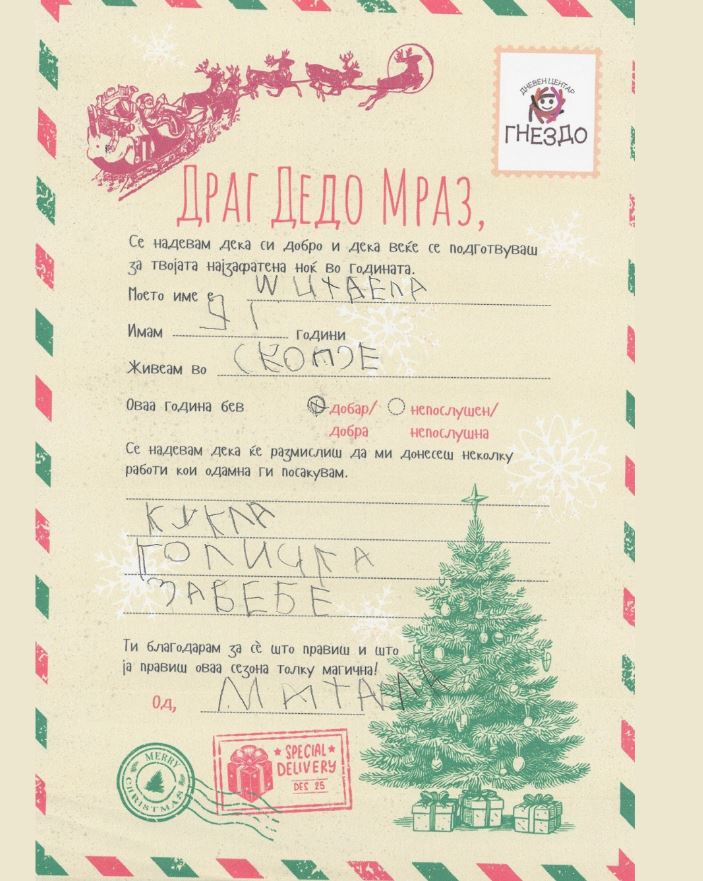 ДНЕВЕН ЦЕНТАР
ГНЕЗДО
Драг Дедо Мраз,
Се надевам дека си добро и дека веќе се подготвуваш
за твојата најзафатена ноќ во годината.
Моето име е МИХАЕЛА
Имам години
Живеам во СКОПЈЕ
Оваа година бев добар/ непослушен/
добра непослушна
Се надевам дека ќе размислиш да ми донесеш неколку
работи кои одамна ги посакувам.
КУКЛА
ГОЛИЧКА
ЗА БЕБЕ
Ти благодарам за сѐ што правиш и што
ја правиш оваа сезона толку магична!
Од,
MERRY
CHRISTMAS
SPECIAL
DELIVERY
DES 25